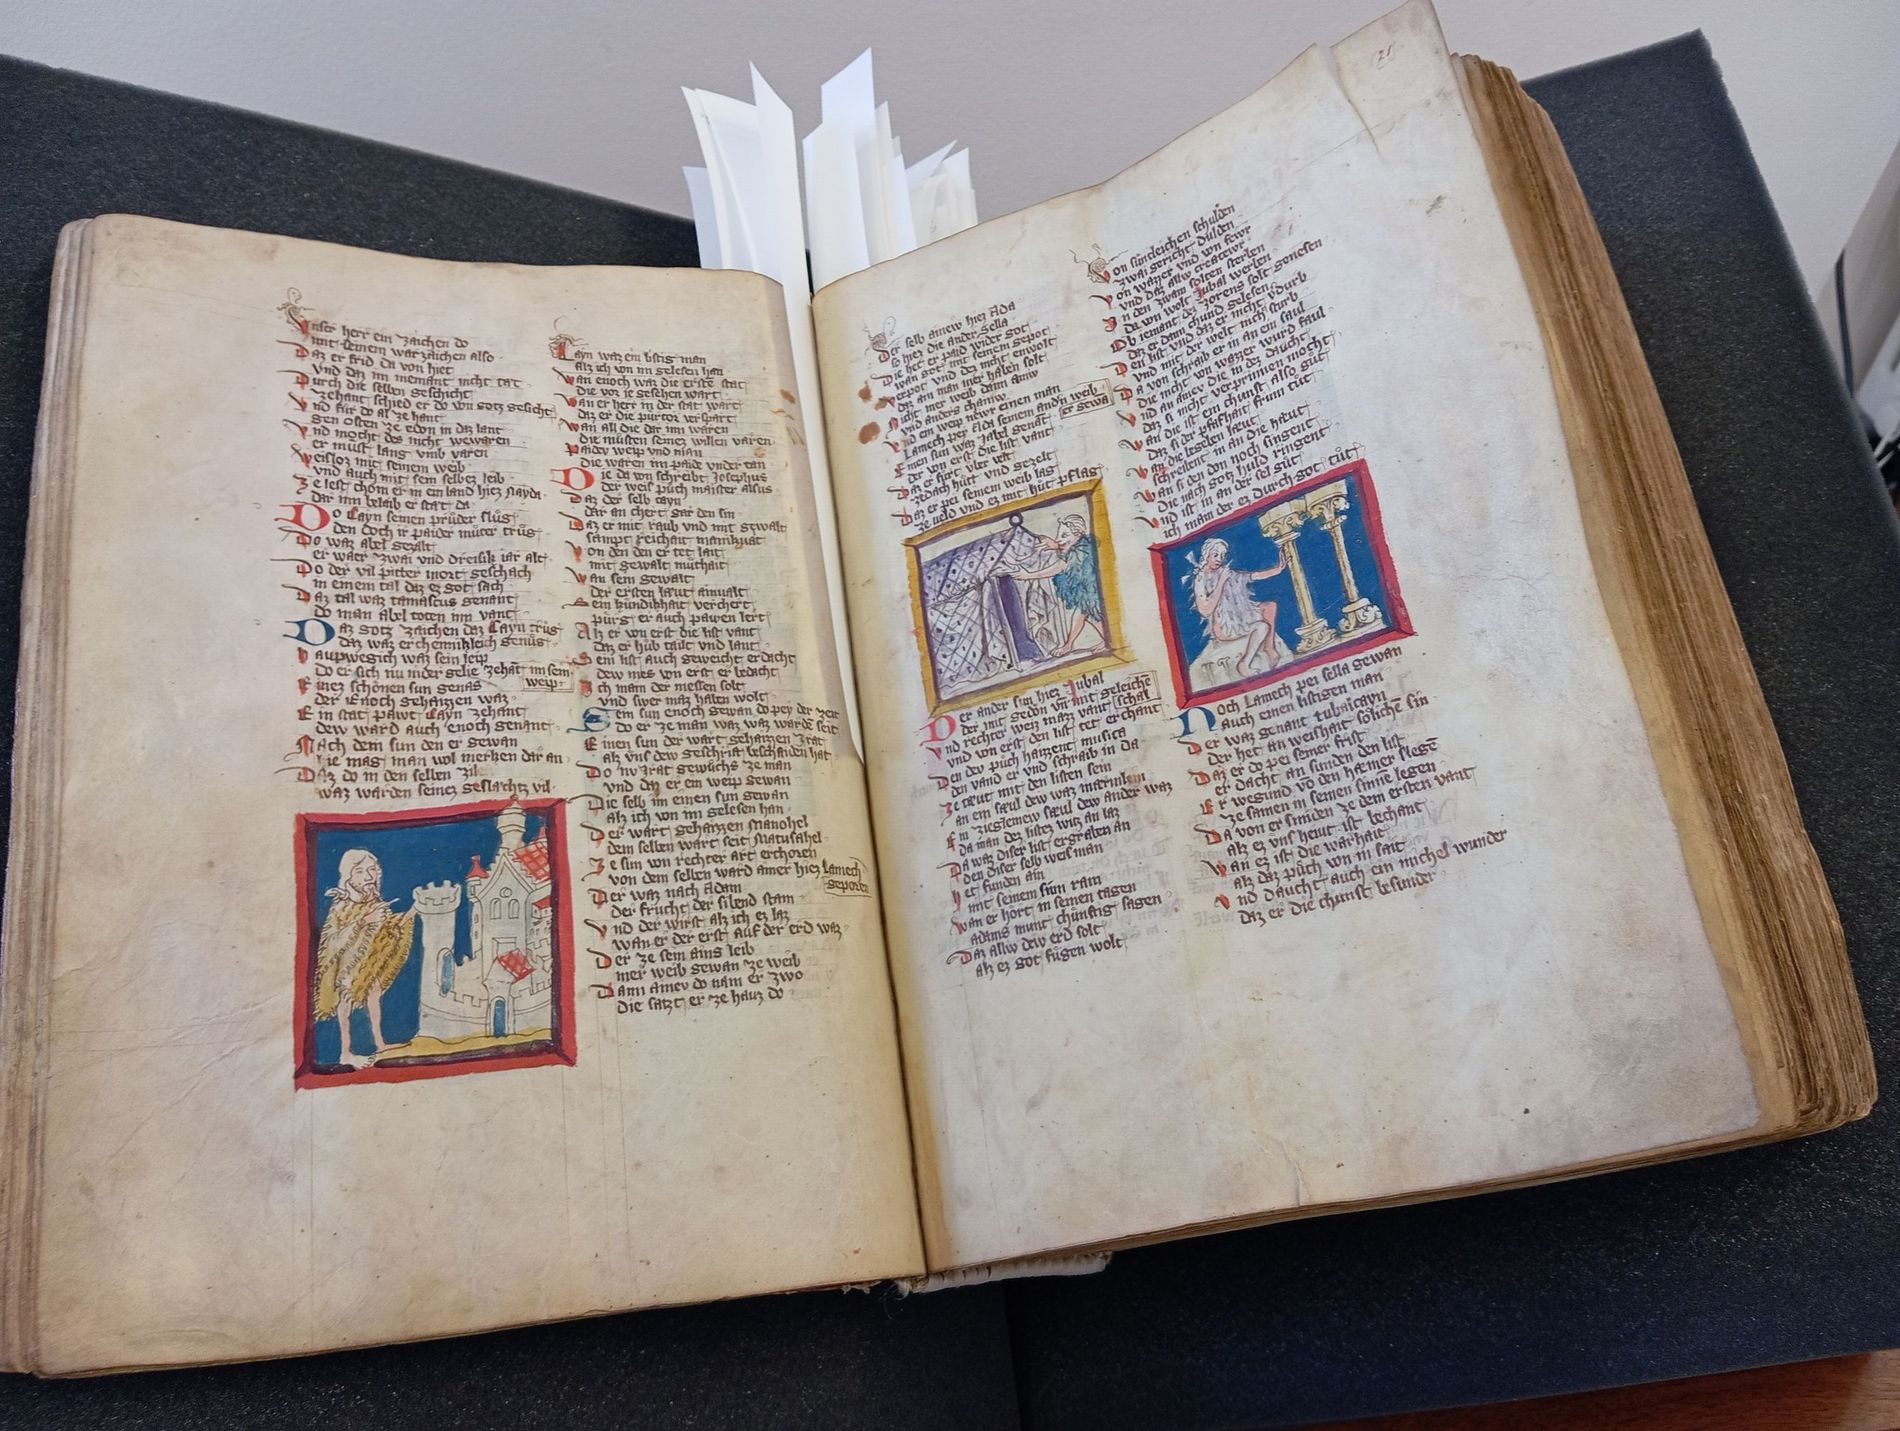 Unser herr ein zaichen do
mit seinem warzaichen also
Daz er frid da von hiet
Und daz im niemant nicht tät
Durch die selben geschicht
zehant schied er do von gotz gesicht
Und für do al zehant
gen osten ze edon in daz lant
Und mocht des nicht wewaren
er müst lang umb varen
Weisloz mit seinem weib
und auch mit sein selbez leib
Ze lest chom er in ein land hiez Nayda
dar inn belaib er stät da
Do Cayn seinen prüder slüg
den doch ir paider müter trüg
Do waz abel gezalt
er wär zwai und dreisik iar alt
Do der vil pitter mort geschach
in einem tal daz ez got sach
Daz tal waz tamascus genant
do man abel toten inn vant
Daz gotz zaichen daz Cayn trüg
daz waz erchennikleich genüg
haupwegich waz sein leip
do er sich nu nider gelie zehāt im sein
weip
Einez schönen sun genas
der Enoch gehaizzen waz
Ein stat pawt Cayn zehant
dew ward auch enoch genant
Nach dem sun den er gewan
hie mag man wol merken dar an
Daz do in den selben zil
waz warden seinez geslächtz vil
Cayn waz ein listig man
alz ich von im gelesen han
wan enoch waz die erste stat
die vor ie gesehen wart
wan er herr in der stat wart
daz er die purtor verspart
wan all die dar inn waren
die müsten seinez willen varen
paidey weip und man
die waren im paide under tan
Die da von schreibt Josephus
der weis püch maister alsus
Daz der selb cayn
dar an chert gar den sin
Daz er mit raub und mit gewalt
sampt reichait manikvalt
von den den er tet lait
mit gewalt müthait
wan sein gewalt
der ersten läut ainvalt
Sein kündikhait verchert
pürg er auch pawen lert
Alz er von erst die list vant
daz er hüb taūt und laut
Seni list auch geweicht er dacht
dew mes von erst er bedacht
Ich main der messen solt
und swer maz haben wolt
Sein sun enoch gewan do pey der zeit
do er ze man waz waz wardē seit
Einen sun der wart gehaizzen Irat
alz uns dew geschrift bescheiden hat
Do nu Irat gewüchs ze man
und daz er ein weip gewan
Die selb im einen sun gewan
alz ich von im gelesen han
Der wart gehaizzen Manohel
dem selben wart seit Matusahel
Ze sun von rechter art erchoren
von dem selben ward ainer hiez Lamech
geporen
Der waz nach Adam
der frücht der sibend stam
Und der wirst alz ich ez laz
wan er der erst auf der erd waz
Der ze sein ains leib
mer weib gewan ze weib
Dann ainev do nam er zwo
die satzt er ze hauz do
Der selb ainew hiez Ada
so hiez die ander Sella
Die het er paid wider got
wan got mit seinem gepot
verpot und dez nicht enwolt
daz ain man mer haben solt
Nicht mer weib dann ainw
und anders chainiw
Und ein weip newr einen man
Lamech per Ada seinem andn weib
er gewā
Einen sun waz Jabel genāt
der von erst die list vant
Daz er fürt uber velt
Redach hütt und gezelt
Daz er pei seinem weib lag
ze veld und ez mit hüt pflag
Der ander sun hiez Jubal
der mit gedön un mit geleichē
schal
Und rechter weiz mazz vant
und von erst den list tet erchant
Den dev püch haizzent musica
den vand er und schraib in da
Ze taeut mit den listen sein
an ein saeul dew waz märmlein
Ein zieglemew saeul dew ander waz
da man dez listez witz an laz
Da waz diser list ergraben an
den diser selb weis man
het funden ain
mit seinem sun rain
wan er hört in seinen tagen
Adams munt chünftig sagen
Daz allw dew erd solt
alz ez got fügen wolt
Von sündleichen schulden
zwai gericht dulden
von wazzer und von fewr
und daz allw createwr
In den zwain solten sterben
da von wolt Jubal werben
Ob iemant dez zorens solt genesen
daz er dann chund gelesen
Den list und daz er nicht vdurb
und mit der welt nich sturb
Da von schraib er in an ein saul
die nicht von wazzer wurd faul
Und an ainev die in der daucht
daz si nicht verprinnen möcht
Wan die ist ein chunst also güt
daz si der pfafhait frum tüt
Wan die legelen laeut
schreient in an die haeut
Wan si den noch singent
die nach gotz huld ringent
Und ist in an der sel güt
ich main der ez durch got tüt
Noch Lamech pei sella gewan
auch einen listigen man
Der waz genant tubalcayn
der het an weishait sölichē sin
Daz er do pei seiner frist
er dacht an sünden den list
Er wegund vō den haemer slegē
ze samen in seinen sinnē legen
Da von er sinden ze dem ersten vant
alz ez uns hewt ist bechant
Wan ez ist die warhait
alz daz püch von in sait
Und daucht auch ein michel wunder
daz er die chunst besunder
121